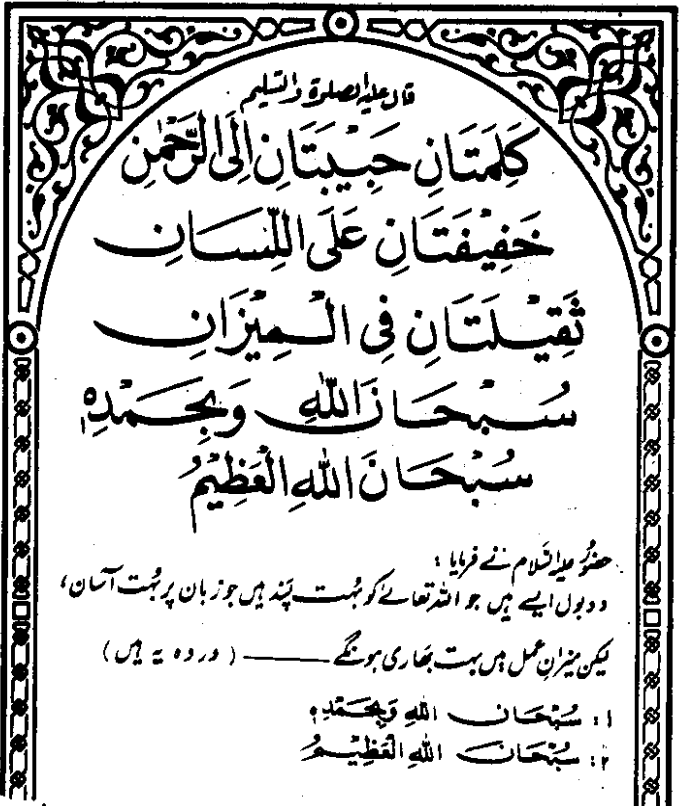 قال علیہ الصلوۃ والتسلیم
كَلِمَتَانِ حَبِيْبَتَانِ اِلَى الرَّحْمٰنِ
خَفِيْفَتَانِ عَلَى اللِّسَانِ
ثَقِيْلَتَانِ فِي الْمِيْزَانِ
سُبْحَانَ اللّٰهِ وَبِحَمْدِهٖ
سُبْحَانَ اللّٰهِ الْعَظِيْمُ
حضورُ علیہ السّلام نے فرمایا :
دو بول ایسے ہیں جو اللہ تعالےٰ کو بہُت پَند ہیں جو زبان پر بہُت آسان،
لیکن میزانِ عمل میں بہت بھاری ہونگے ——— ( ور دہ یہ ہیں )
۱: سُبْحَانَ اللّٰهِ وَبِحَمْدِهٖ
۲: سُبْحَانَ اللّٰهِ الْعَظِيْمُ